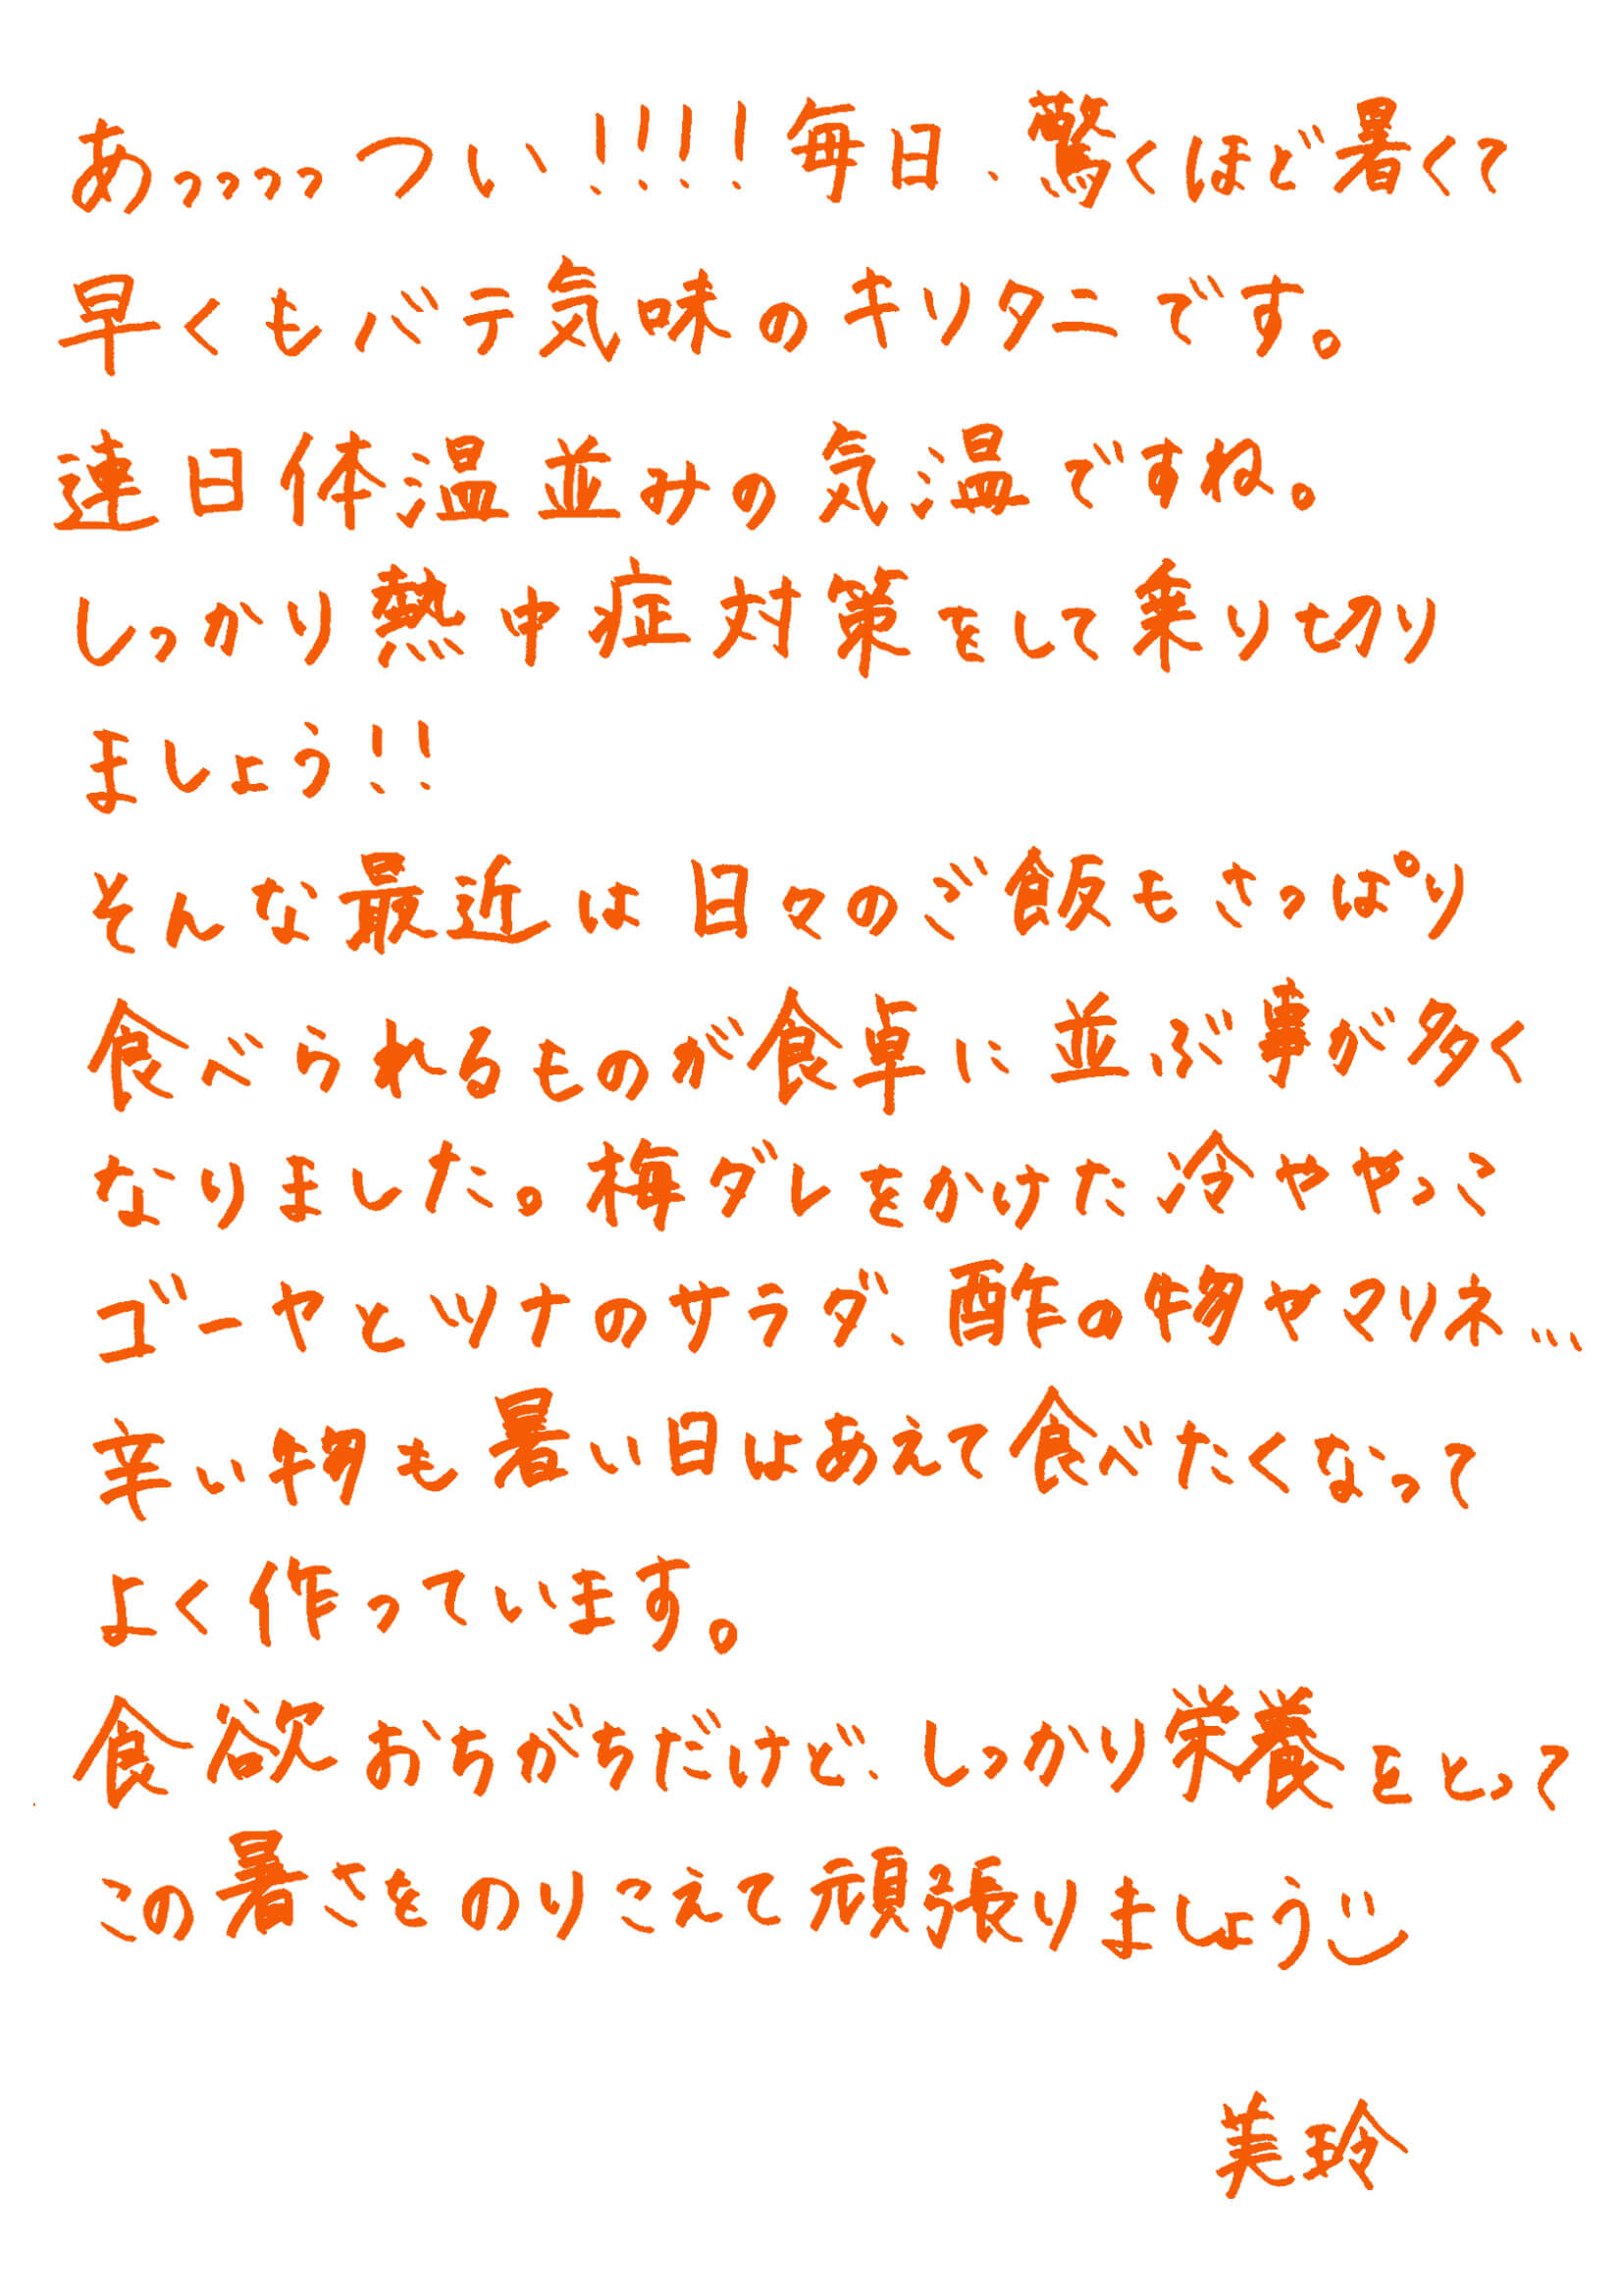 あっっっっつい!!!!毎日、驚くほど暑くて
早くもバテ気味のキリタニです。
連日体温並みの気温ですね。
しっかり熱中症対策をして乗り切り
ましょう!!
そんな最近は日々のご飯もさっぱり
食べられるものが食卓に並ぶ事が多く
なりました。梅ダレをかけた冷ややっこ
ゴーヤとツナのサラダ、酢の物やマリネ…
辛い物も暑い日はあえて食べたくなって
よく作っています。
食欲おちがちだけど、しっかり栄養をとって
この暑さをのりこえて頑張りましょう
美玲